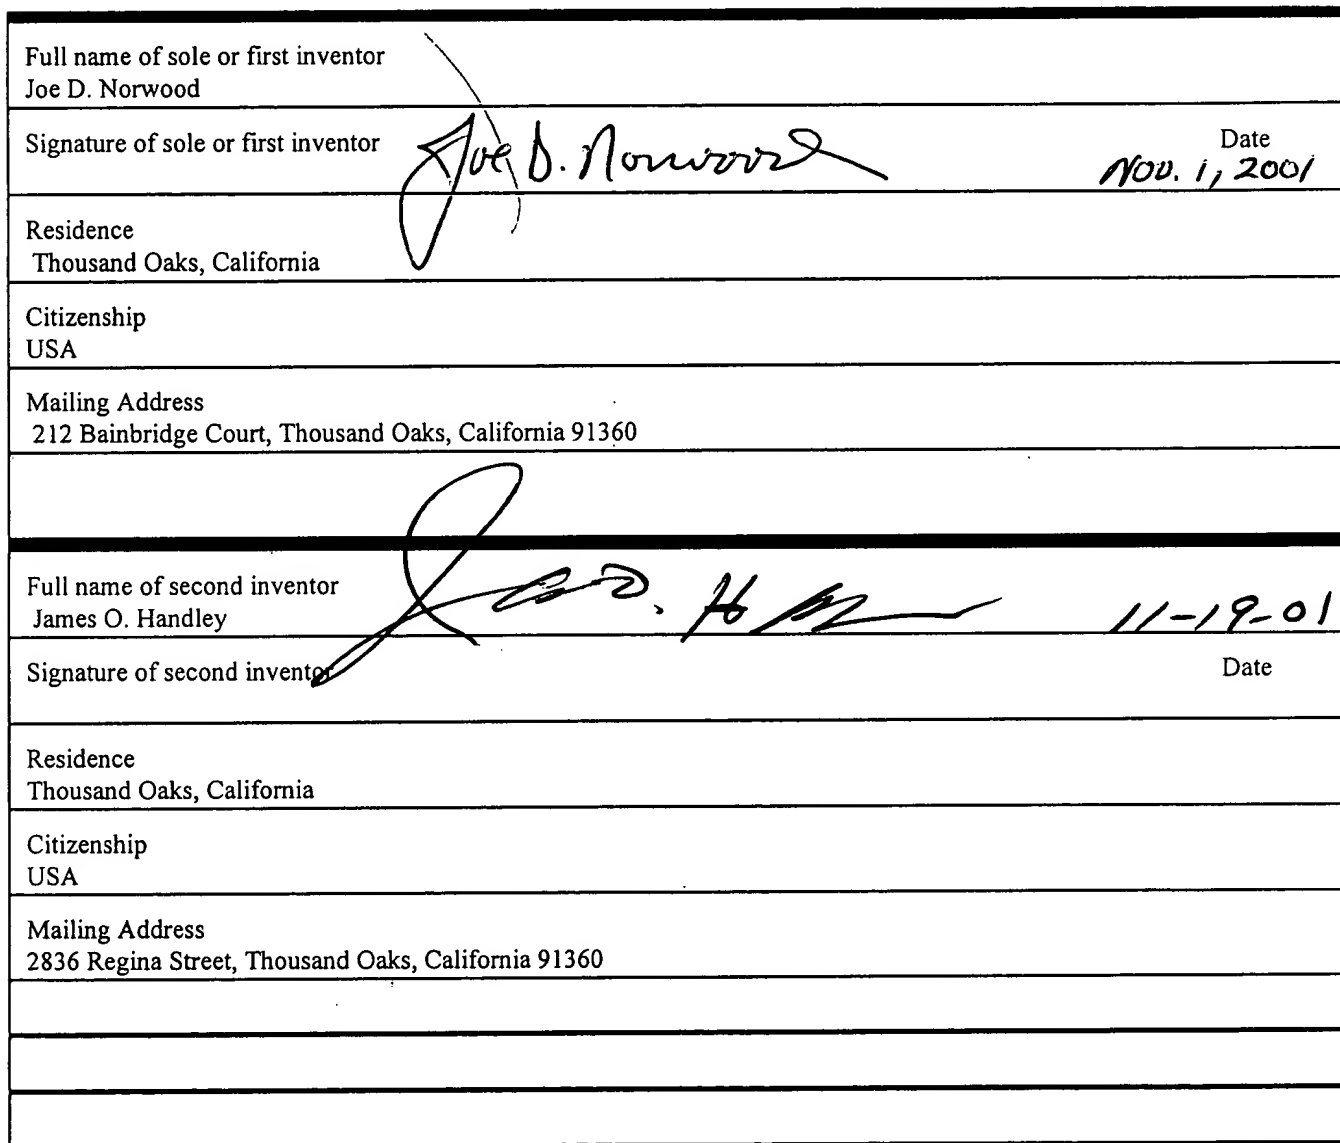 Full name of sole or first inventor
Joe D. Norwood
Signature of sole or first inventor Joe D. Norwood Date
Nov. 1, 2001
Residence
Thousand Oaks, California
Citizenship
USA
Mailing Address
212 Bainbridge Court, Thousand Oaks, California 91360
Full name of second inventor
James O. Handley
11-19-01
Signature of second inventor Date
Residence
Thousand Oaks, California
Citizenship
USA
Mailing Address
2836 Regina Street, Thousand Oaks, California 91360